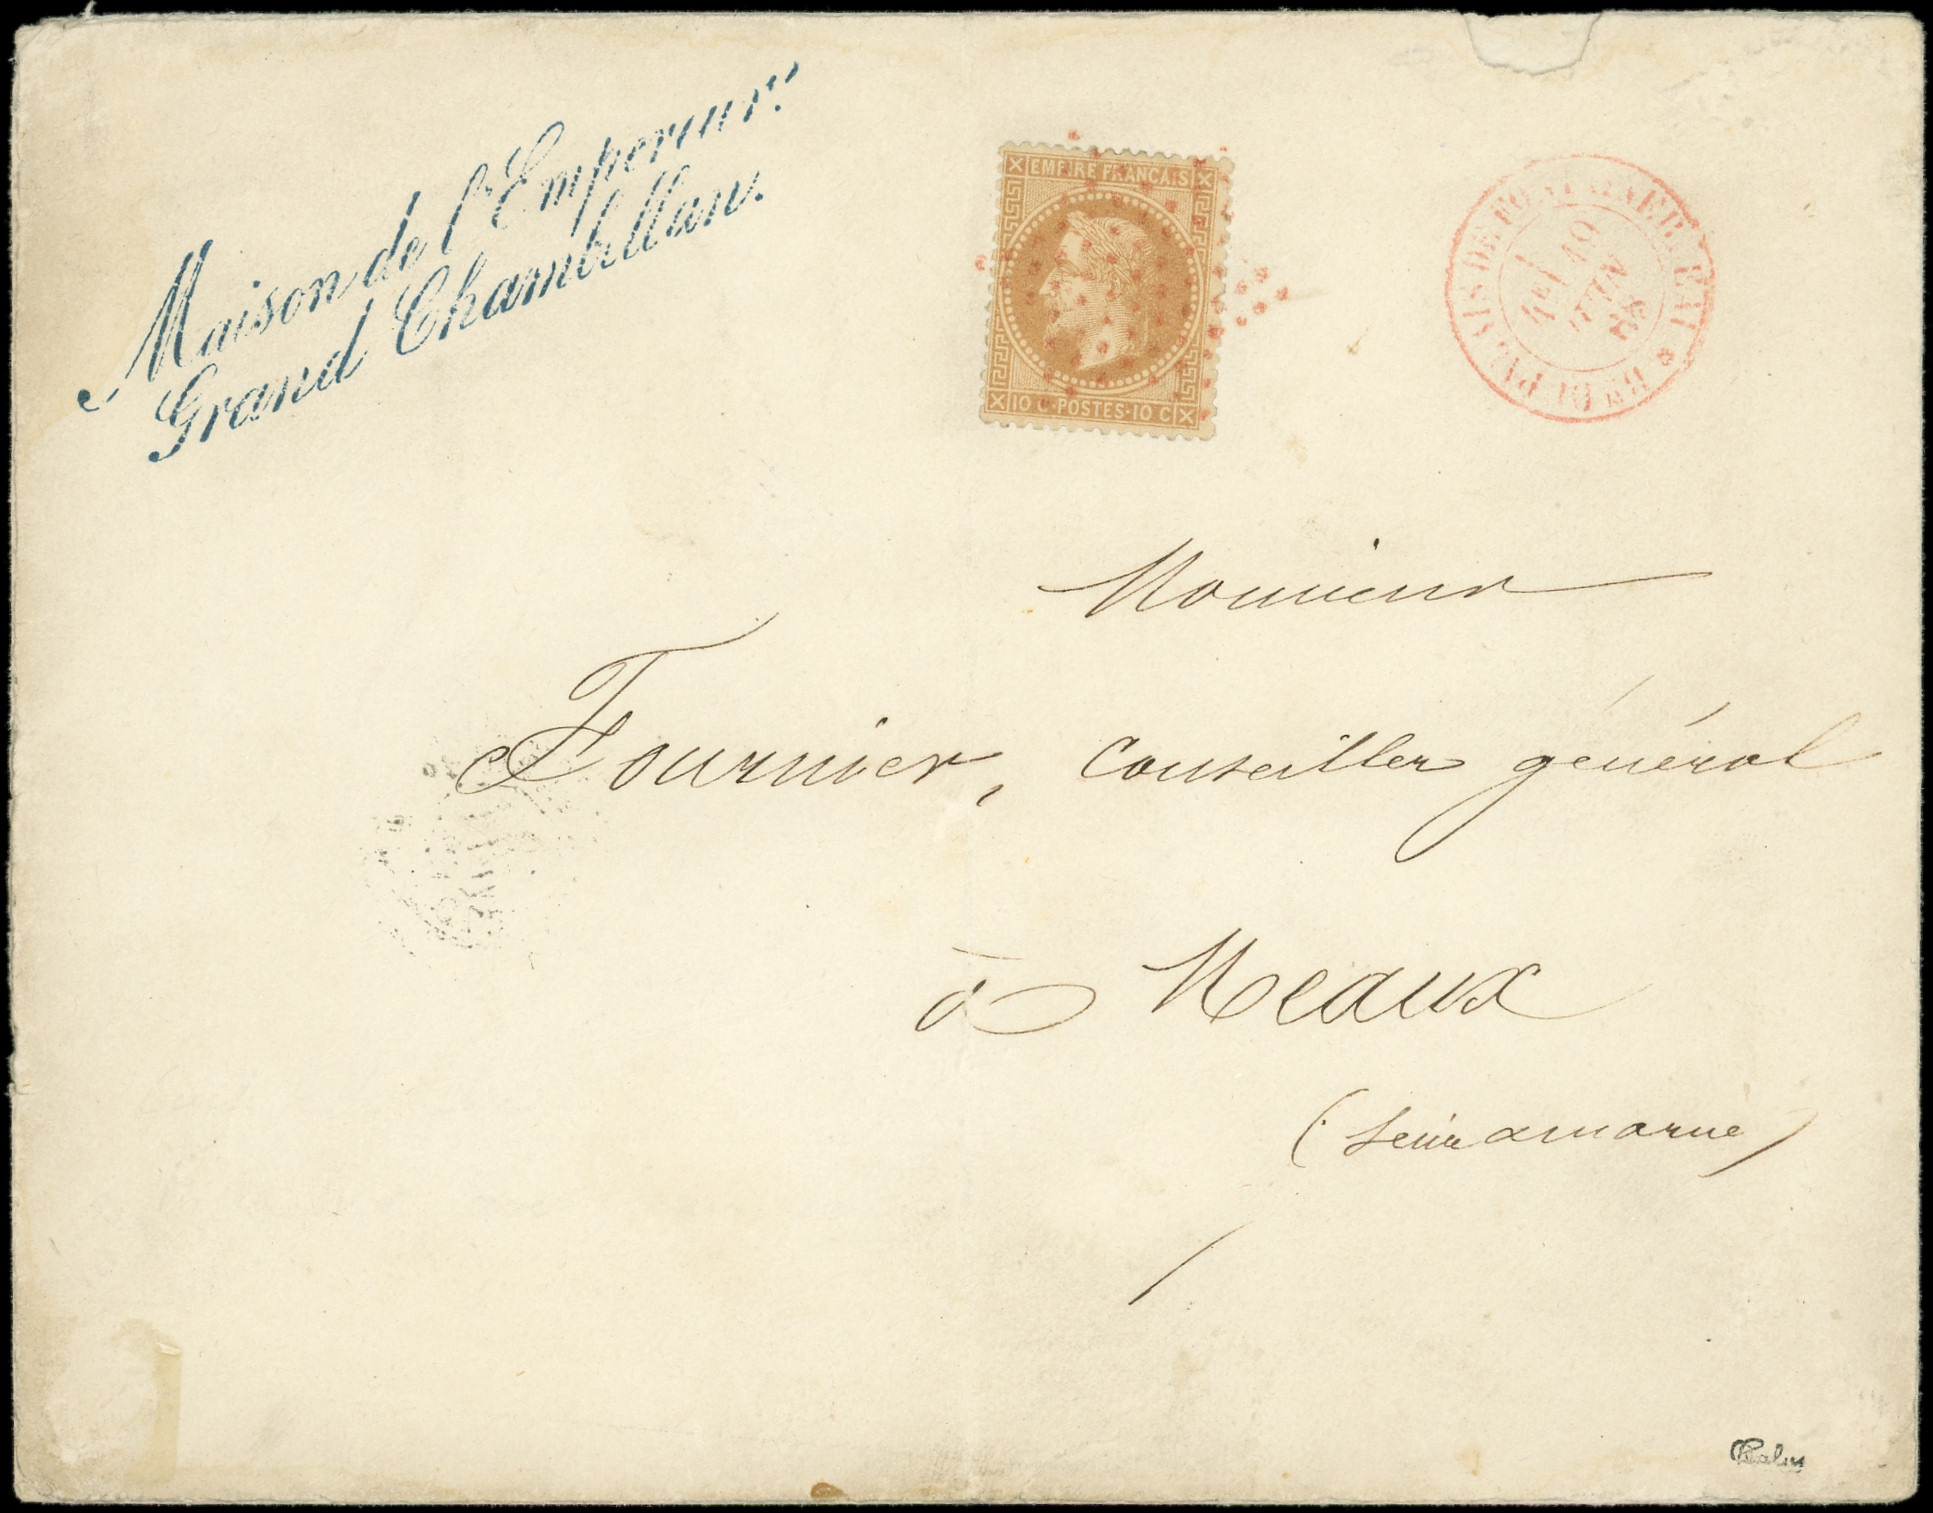 Maison de l'Empereur.
Grand Chambellan.
EMPIRE FRANÇAIS
10 C·POSTES·10 C
Bau DU PALAIS DE FONTAINEBLEAU
4e/
19
JUIN
68
Monsieur
Fournier, Conseiller général
à Meaux
(Seine & Marne)
Calves